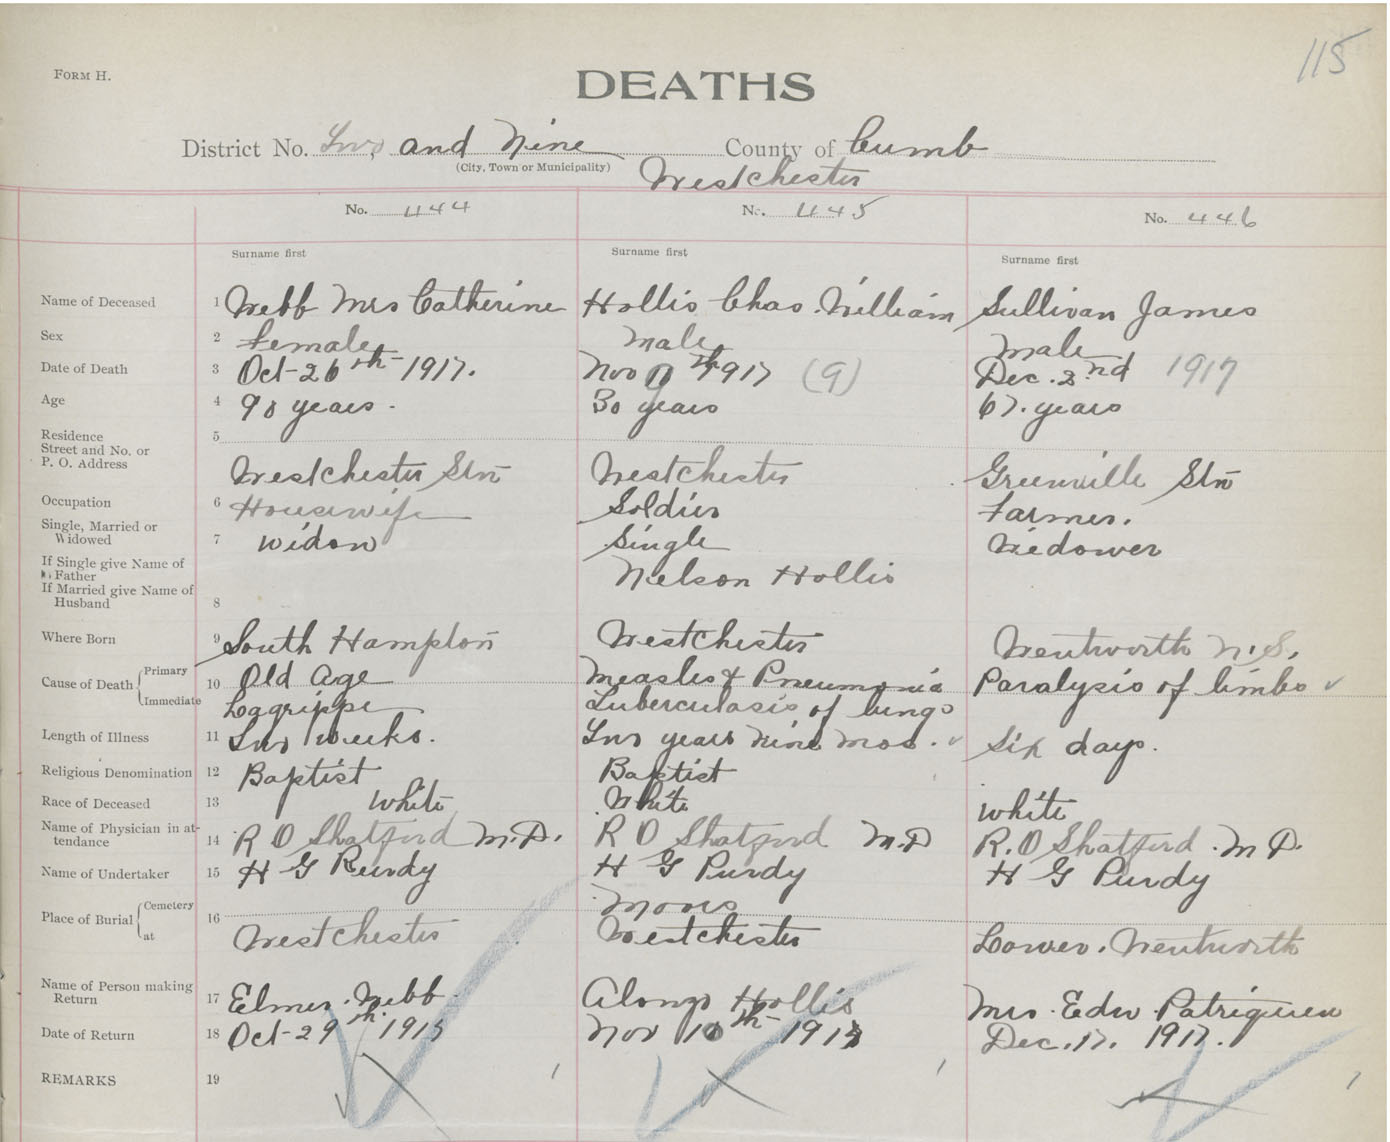 115
FORM H.
DEATHS
District No. Two and Nine County of Cumb
(City, Town or Municipality) Westchester
No. 444 No. 445 No. 446
Surname first Surname first Surname first
Name of Deceased 1 Webb Mrs Catherine Hollis Chas. William Sullivan James
Sex 2 Female Male Male
Date of Death 3 Oct-26th-1917. Nov 9th 1917 (9) Dec. 2nd 1917
Age 4 90 years. 30 years 67. years
Residence 5
Street and No. or
P. O. Address Westchester Stn Westchester Greenville Stn
Occupation 6 Housewife Soldier Farmer.
Single, Married or
Widowed 7 Widow Single Widower
If Single give Name of
Father Nelson Hollis
If Married give Name of
Husband 8
Where Born 9 South Hampton Westchester Wentworth N.S.
Cause of Death Primary 10 Old Age Measles & Pneumonia Paralysis of limbs
Immediate Lagrippe Tuberculasis of lungs
Length of Illness 11 Two weeks. Two years nine mos. Six days.
Religious Denomination 12 Baptist Baptist
Race of Deceased 13 White White White
Name of Physician in at-
tendance 14 R O Shatford M.D. R O Shatford M.D R.O Shatford. M D.
Name of Undertaker 15 H G Purdy H G Purdy H G Purdy
Place of Burial Cemetery 16
at Westchester Westchester Lower. Wentworth
Name of Person making
Return 17 Elmer. Webb. Alonzo Hollis Mrs. Edw. Patriquin
Date of Return 18 Oct-29th. Nov 10th- Dec. 17. 1917.
REMARKS 19